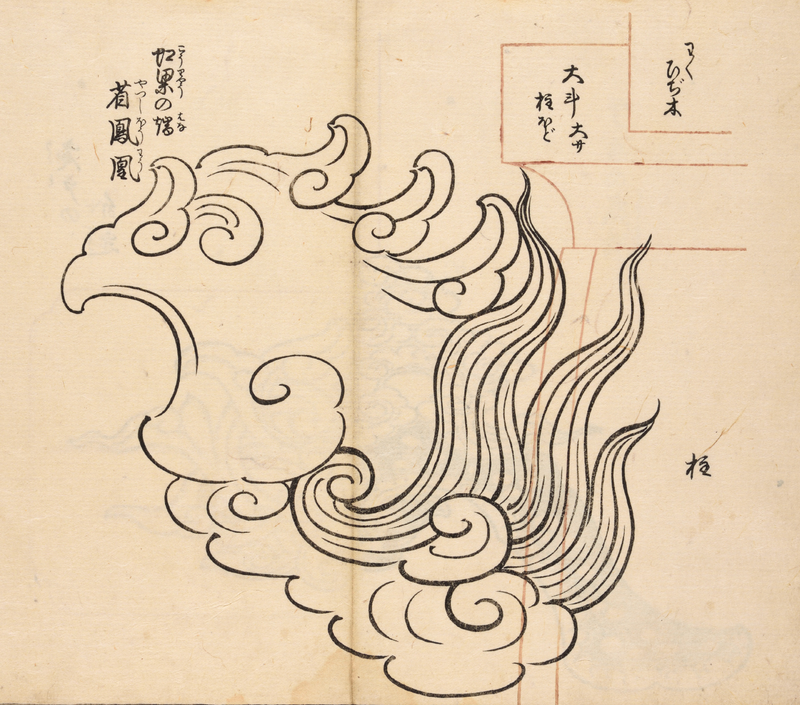 わく
ひぢ木
大斗 大サ
柱ほど
柱
こうりやう はな
虹梁の端
やつしほうわう
省鳳凰